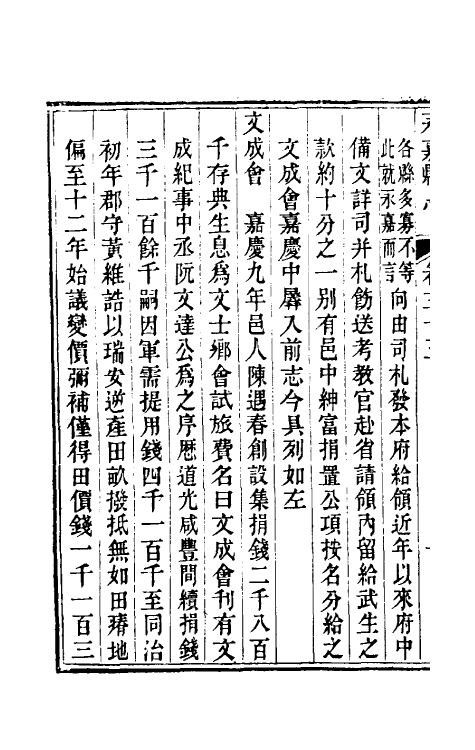 各縣多寡不等
此就永嘉而言
向由司札發本府給領近年以來府中
備文詳司并札飭送考教官赴省請領內留給武生之
款約十分之一別有邑中紳富捐置公項按名分給之
文成會嘉慶中羼入前志今具列如左
文成會　嘉慶九年邑人陳遇春創設集捐錢二千八百
千存典生息爲文士鄉會試旅費名曰文成會刊有文
成紀事中丞阮文達公爲之序歷道光咸豐間續捐錢
三千一百餘千嗣因軍需提用錢四千一百千至同治
初年郡守黃維誥以瑞安逆產田畝撥抵無如田瘠地
偏至十二年始議變價彌補僅得田價錢一千一百三